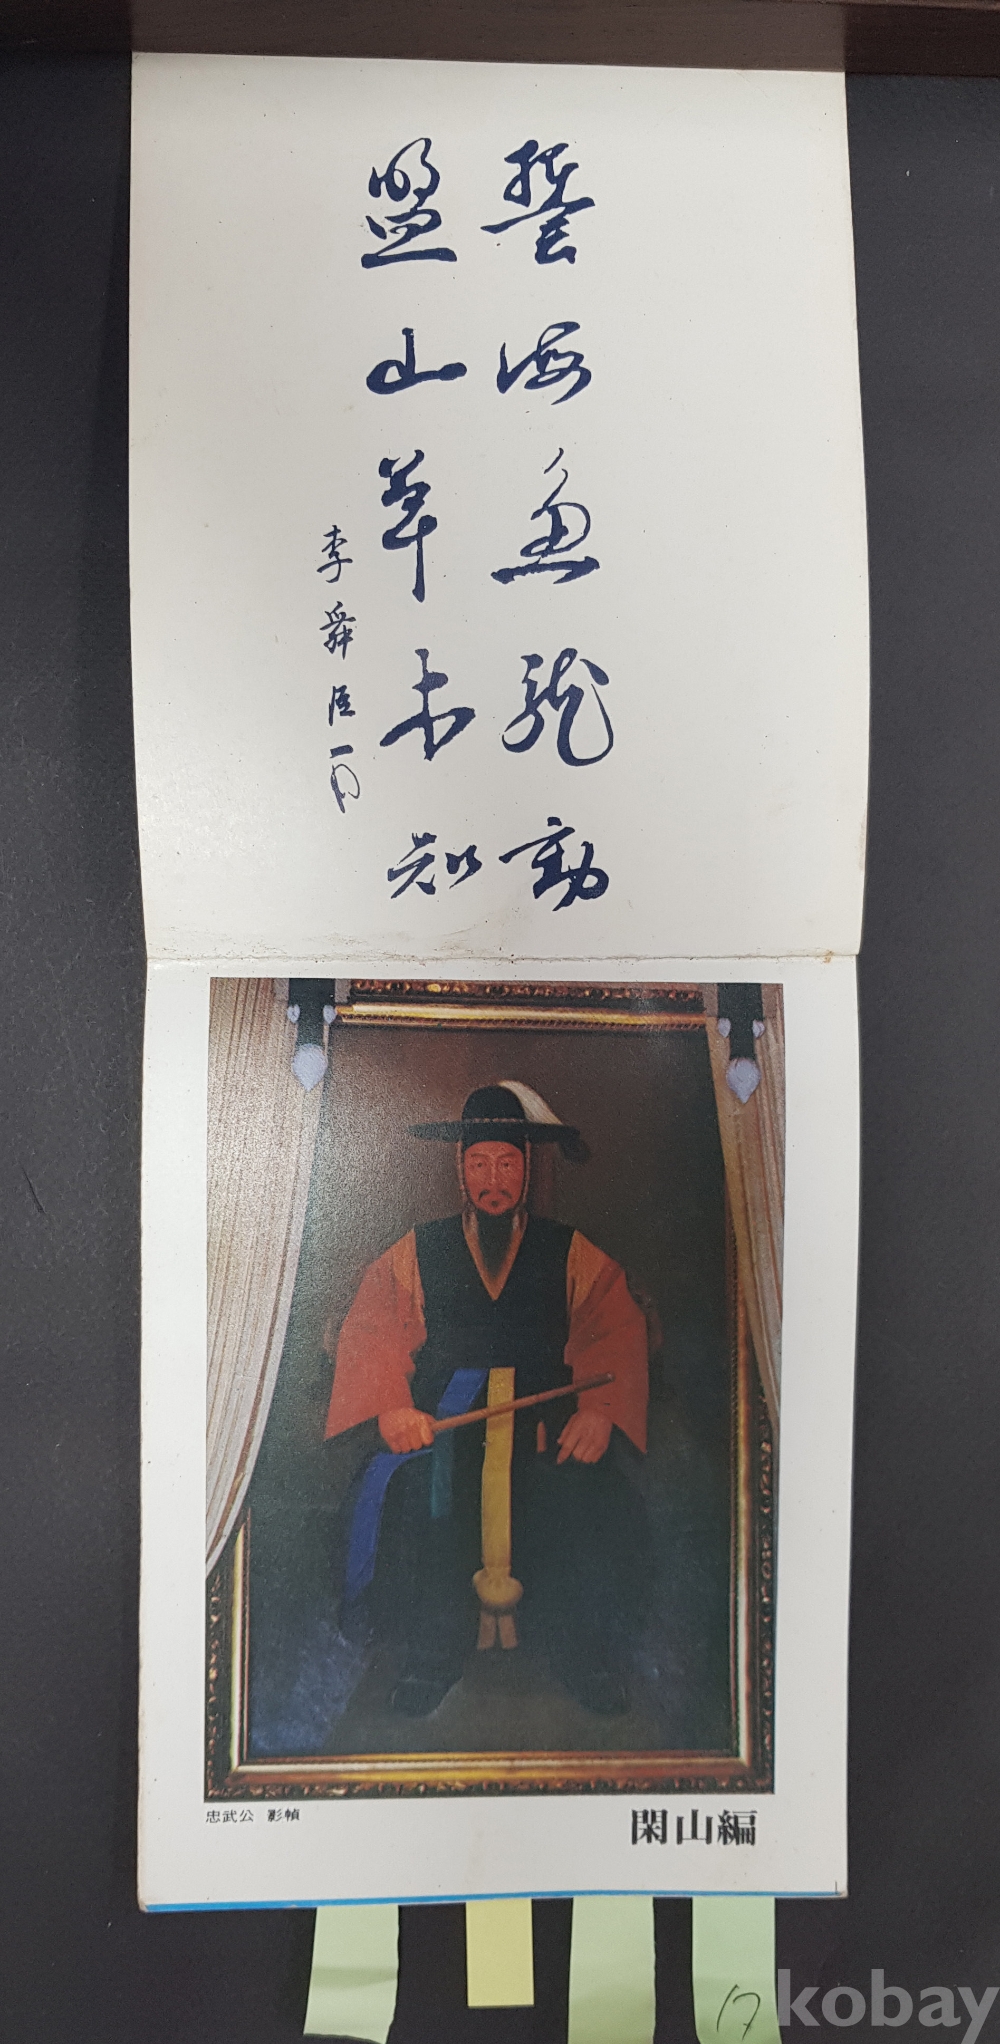 誓海魚龍動
盟山草木知
李舜臣
忠武公 影幀
閑山編
17
kobay